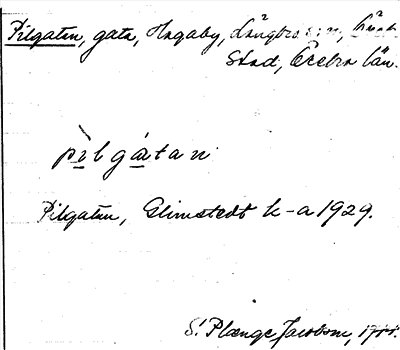 Pilgatan, gata, Hagaby, Längbro
Stad, Örebro län.
pilgatan
Pilgatan, Glimstedt k-a 1929.
S. Plænge Jacobson,